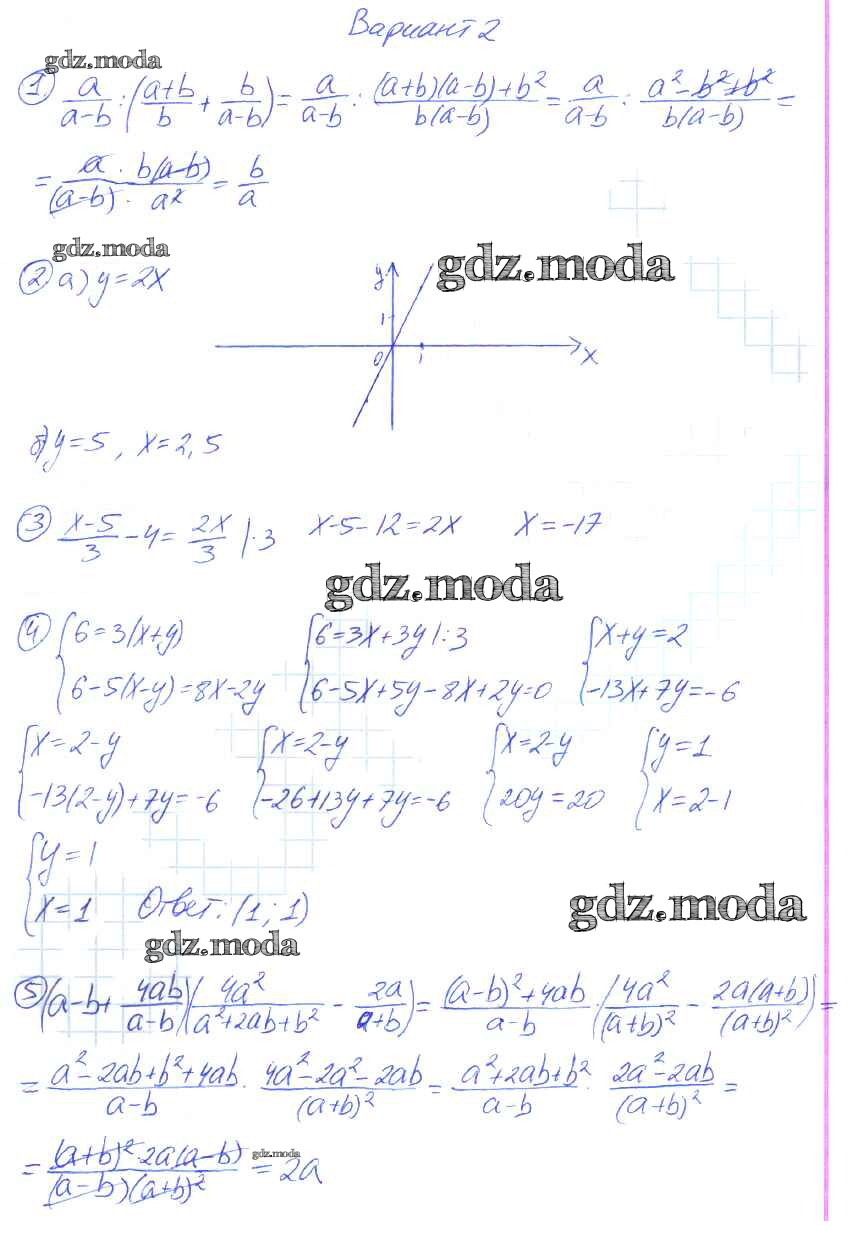 Вариант 2
gdz.moda
① a/(a-b) : ((a+b)/b + b/(a-b)) = a/(a-b) : ((a+b)(a-b)+b²)/(b(a-b)) = a/(a-b) : (a²-b²+b²)/(b(a-b)) =
= (a · b(a-b))/((a-b) · a²) = b/a
gdz.moda
gdz.moda
② а) y=2x
y
1
0 1 x
б) y=5, x=2,5
③ (x-5)/3 - 4 = 2x/3 |·3 x-5-12=2x x=-17
gdz.moda
④ { 6=3(x+y) { 6=3x+3y |:3 { x+y=2
6-5(x-y)=8x-2y 6-5x+5y-8x+2y=0 -13x+7y=-6
{ x=2-y { x=2-y { x=2-y { y=1
-13(2-y)+7y=-6 -26+13y+7y=-6 20y=20 x=2-1
{ y=1
x=1 Ответ: (1; 1)
gdz.moda
gdz.moda
⑤ (a-b+ 4ab/(a-b))(4a²/(a²+2ab+b²) - 2a/(a+b)) = ((a-b)²+4ab)/(a-b) · (4a²/(a+b)² - 2a(a+b)/(a+b)²) =
= (a²-2ab+b²+4ab)/(a-b) · (4a²-2a²-2ab)/(a+b)² = (a²+2ab+b²)/(a-b) · (2a²-2ab)/(a+b)² =
= ((a+b)² · 2a(a-b))/((a-b)(a+b)²) = 2a
gdz.moda